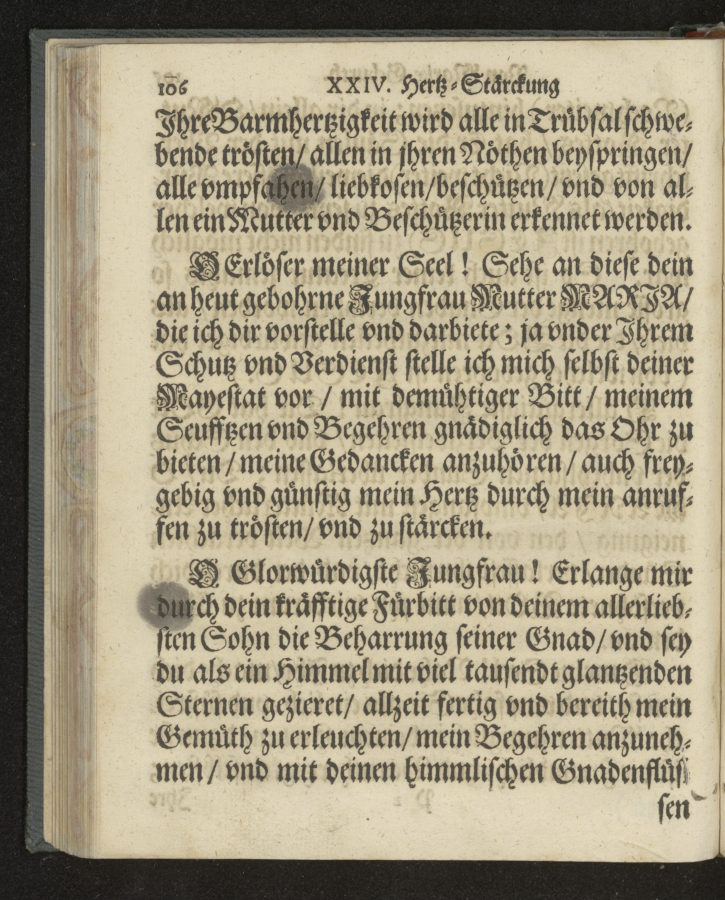 106 XXIV. Hertz⸗Stärckung
Ihre Barmhertzigkeit wird alle in Trübsal schwe⸗
bende trösten/ allen in jhren Nöthen beyspringen/
alle vmpfahen/ liebkosen/beschützen/ vnd von al⸗
len ein Mutter vnd Beschützerin erkennet werden.
O Erlöser meiner Seel! Sehe an diese dein
an heut gebohrne Jungfrau Mutter MARJA/
die ich dir vorstelle vnd darbiete; ja vnder Ihrem
Schutz vnd Verdienst stelle ich mich selbst deiner
Mayestat vor / mit demühtiger Bitt / meinem
Seufftzen vnd Begehren gnädiglich das Ohr zu
bieten / meine Gedancken anzuhören / auch frey⸗
gebig vnd günstig mein Hertz durch mein anruf⸗
fen zu trösten/ vnd zu stärcken.
O Glorwürdigste Jungfrau! Erlange mir
durch dein kräfftige Fürbitt von deinem allerlieb⸗
sten Sohn die Beharrung seiner Gnad/ vnd sey
du als ein Himmel mit viel tausendt glantzenden
Sternen gezieret/ allzeit fertig vnd bereith mein
Gemüth zu erleuchten/ mein Begehren anzuneh⸗
men / vnd mit deinen himmlischen Gnadenflüs⸗
sen